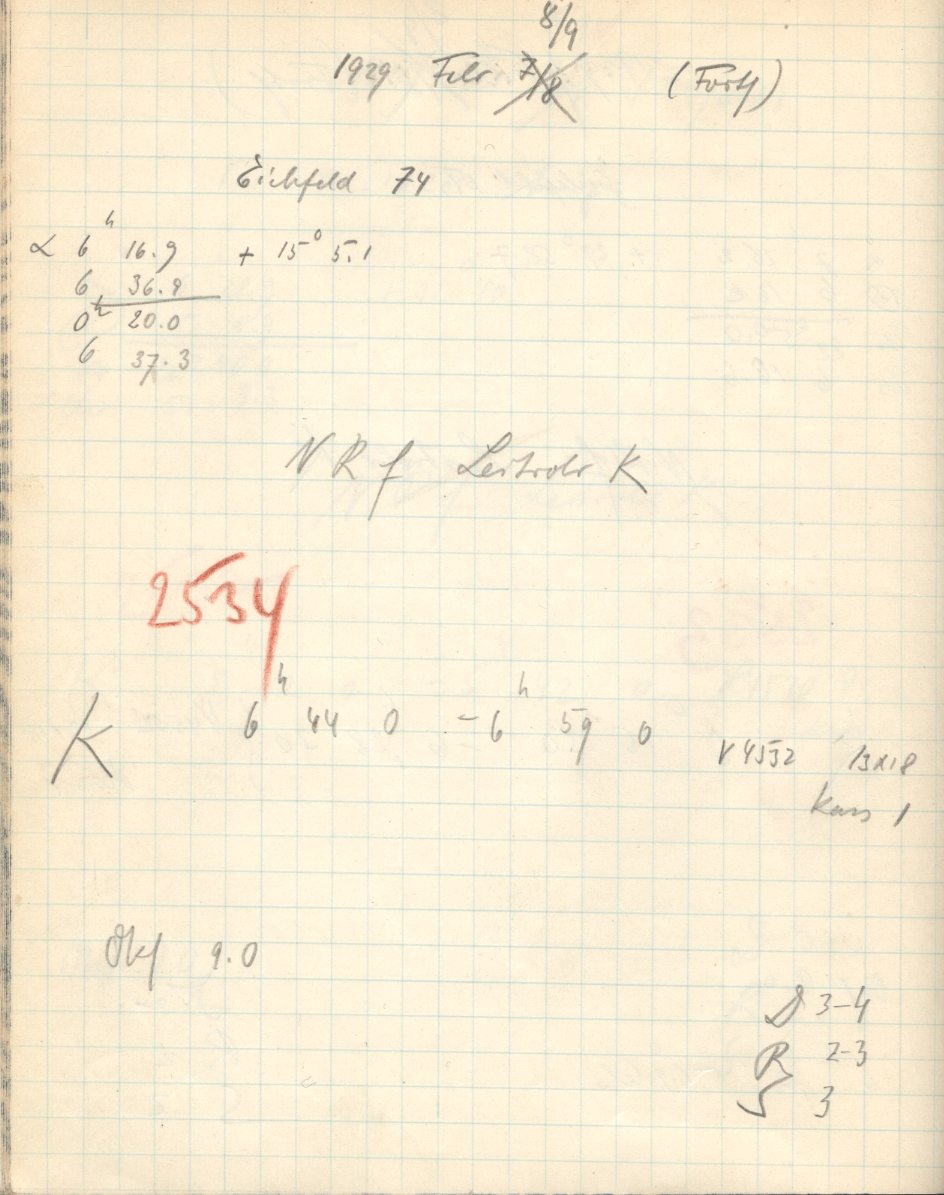 8/9
1929 Febr 7/8 (Forts)
Eichfeld 74
α 6h 16.9 + 15° 5.1
6 36.9
0h 20.0
6 37.3
N R f Leitrohr K
2534
K 6h 44 0 - 6h 59 0
V 4532 13x18
Kass 1
Okf 9.0
D 3-4
R 2-3
S 3